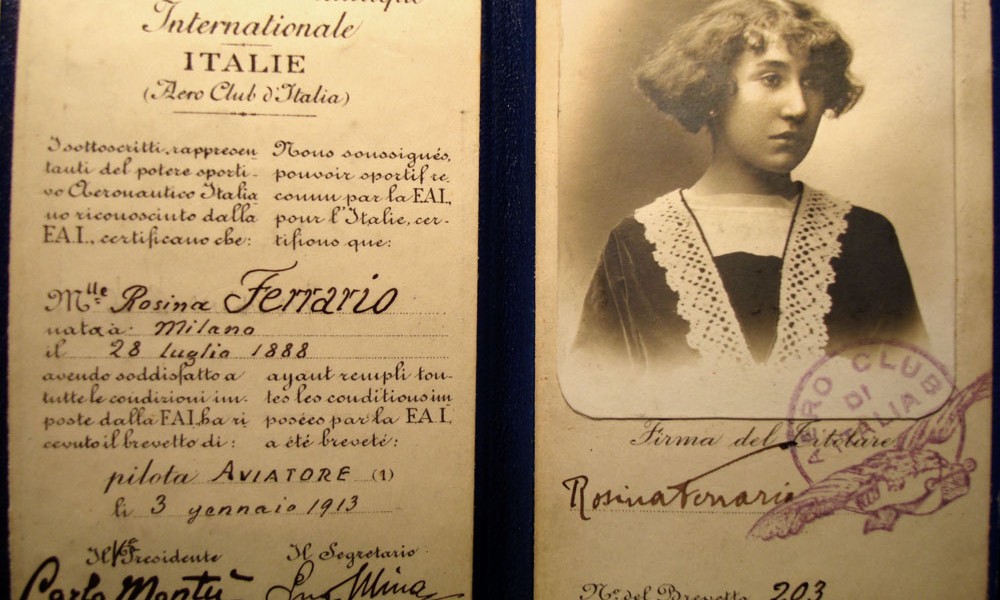 Internationale
ITALIE
(Aero Club d'Italia)
I sottoscritti, rappresen
tanti del potere sporti-
vo Aeronautico Italia
no riconosciuto dalla
F.A.I., certificano che:
Nous soussignés,
pouvoir sportif re
connu par la F.A.I.,
pour l'Italie, cer-
tifions que:
Mlle Rosina Ferrario
nata a Milano
il 28 luglio 1888
avendo soddisfatto a
tutte le condizioni im-
poste dalla F.A.I. ha ri
cevuto il brevetto di:
ayant rempli tou-
tes les conditions im
posées par la F.A.I.
a été breveté:
pilota AVIATORE (1)
li 3 gennaio 1913
Il Presidente
Il Segretario
Carlo Montù
AERO CLUB
DI
ITALIA
Firma del Titolare
Rosina Ferrario
No del Brevetto 203